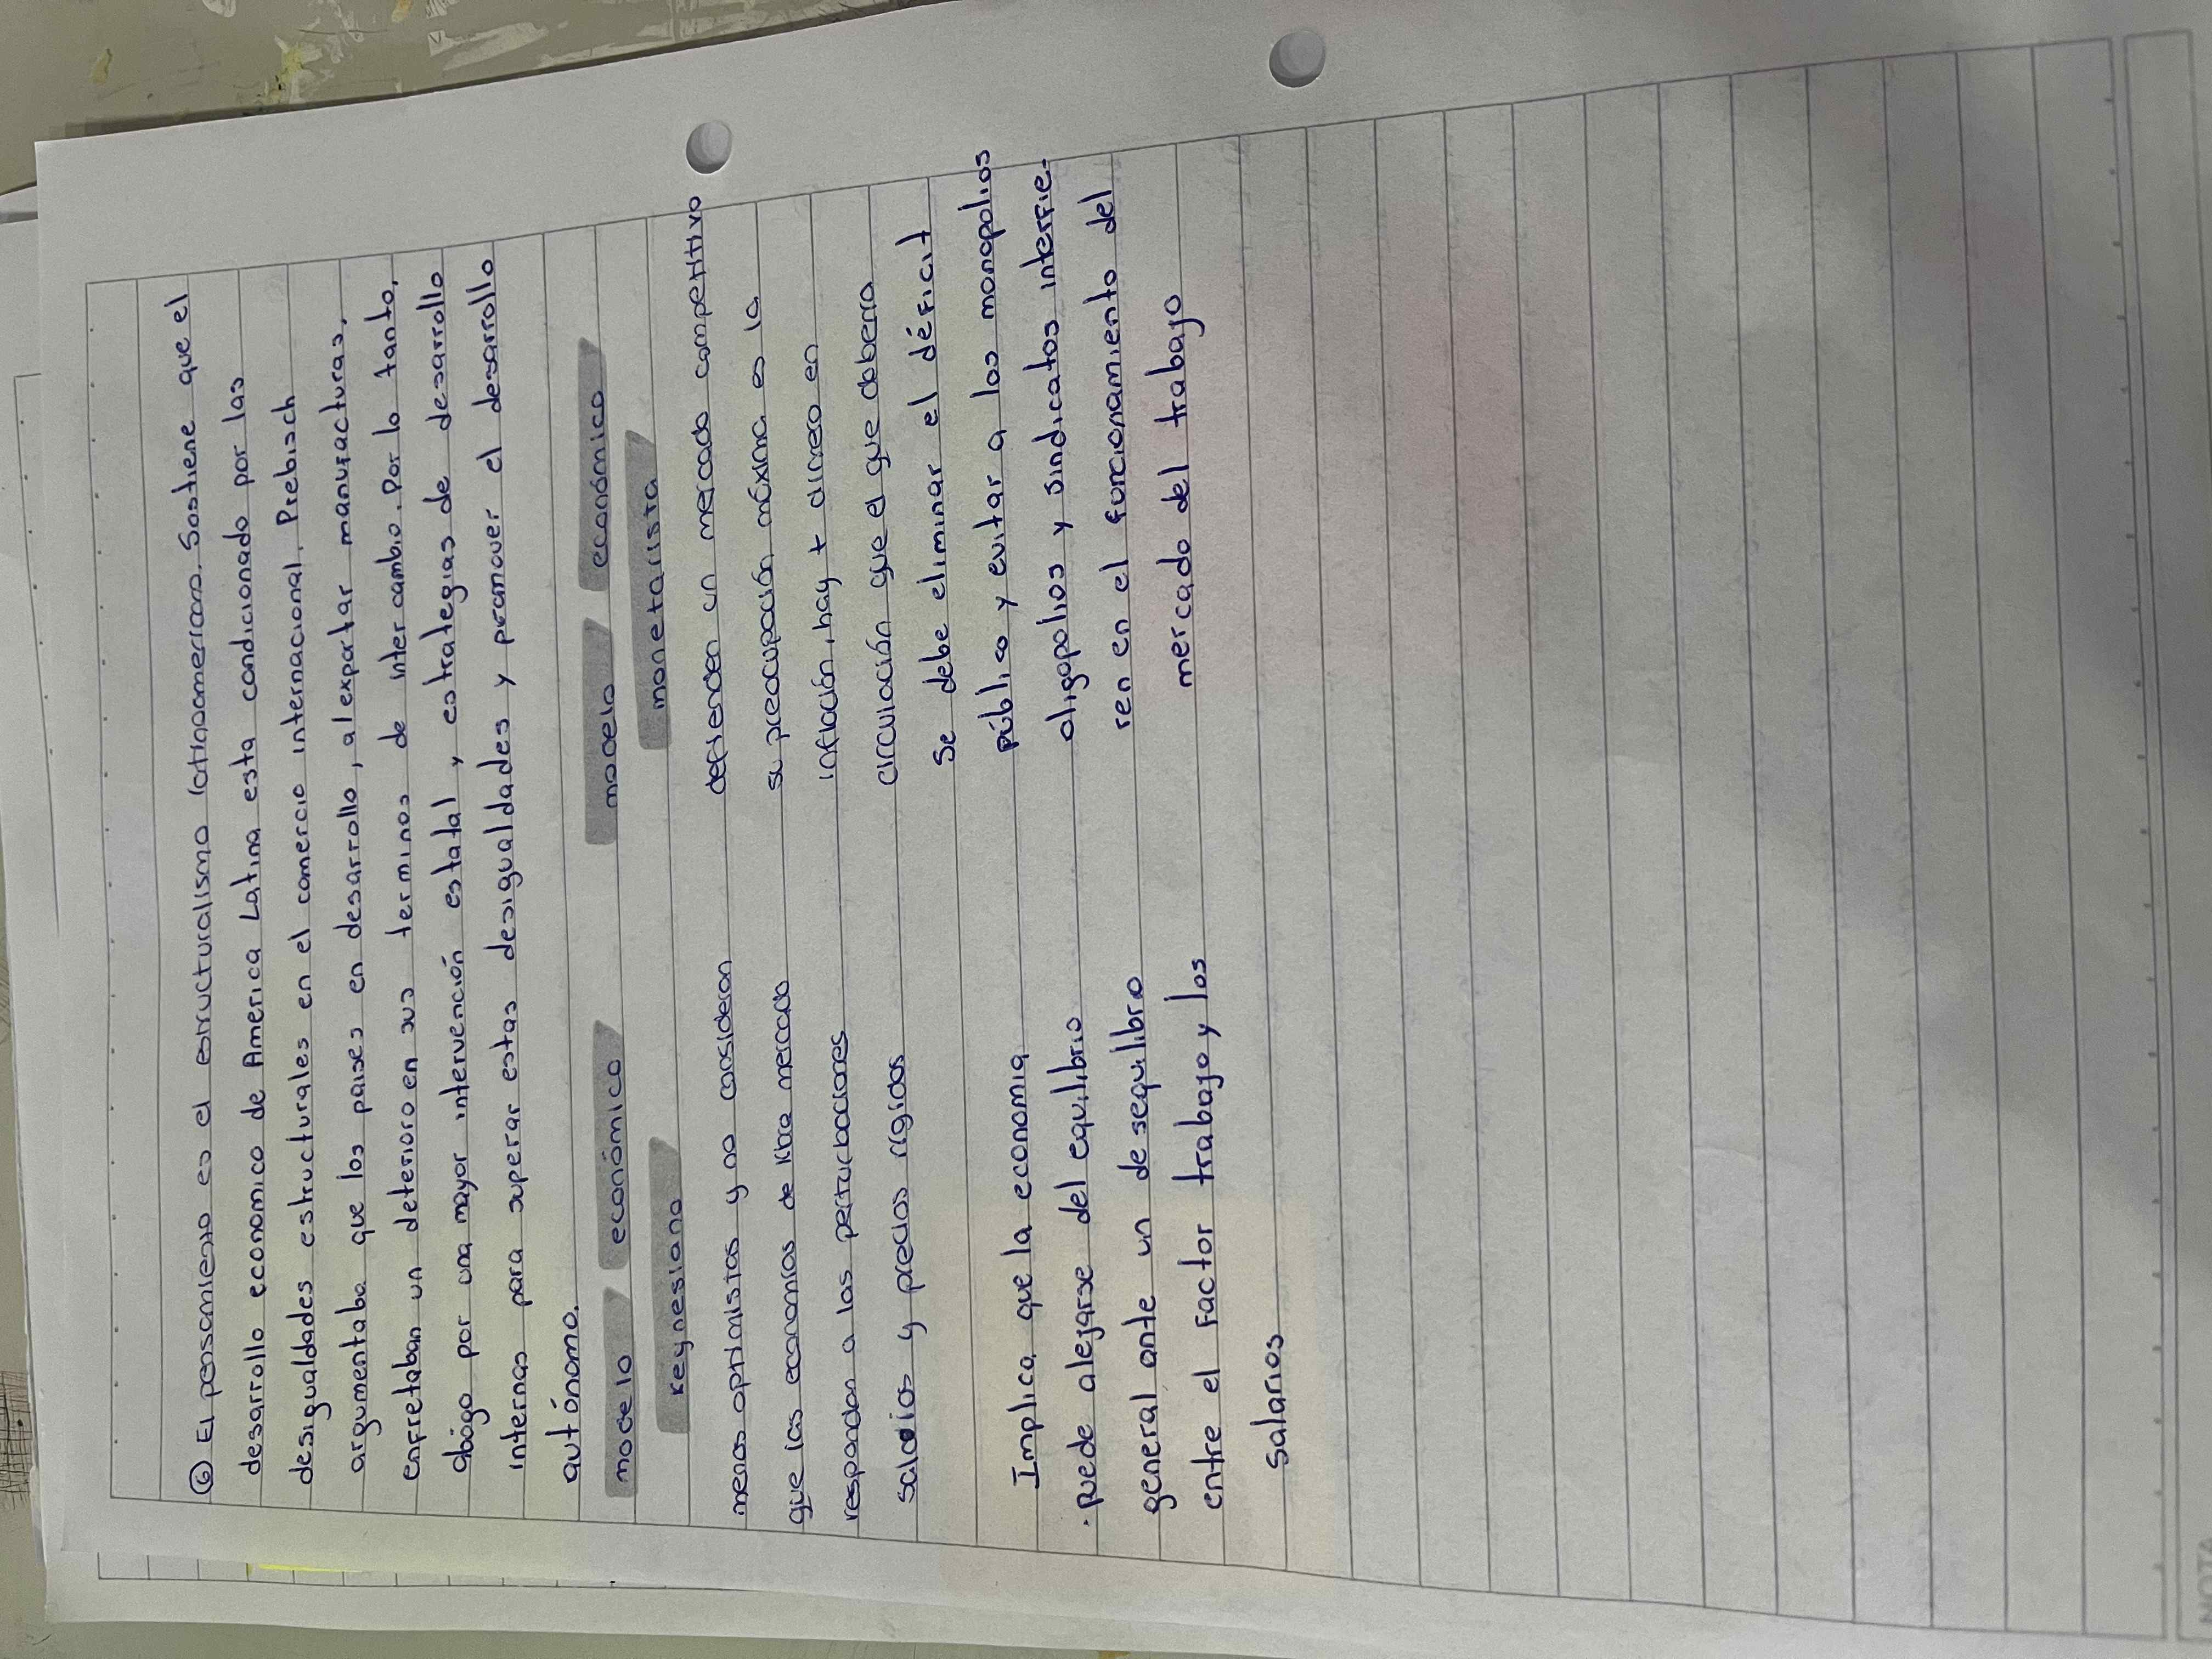 ⑥ El pensamiento es el estructuralismo latinoamericano. Sostiene que el
desarrollo economico de America Latina esta condicionado por las
desigualdades estructurales en el comercio internacional. Prebisch
argumentaba que los paises en desarrollo, al exportar manufacturas,
enfretaban un deterioro en sus terminos de intercambio. Por lo tanto,
abógo por una mayor intervención estatal y estrategias de desarrollo
internas para superar estas desigualdades y promover el desarrollo
autónomo.
modelo económico
keynesiano
menos optimistas y no consideran
que las economías de libre mercado
respondan a las perturbaciones
salarios y precios rígidos
Implica que la economia
. puede alejarse del equilibrio
general ante un desequilibro
entre el factor trabajo y los
salarios
modelo económico
monetarista
defienden un mercado competitivo
su preocupación máxima es la
inflación, hay + dinero en
circulación que el que deberia
Se debe eliminar el déficit
público y evitar a los monopolios
oligopolios y sindicatos interfie-
ren en el funcionamiento del
mercado del trabajo